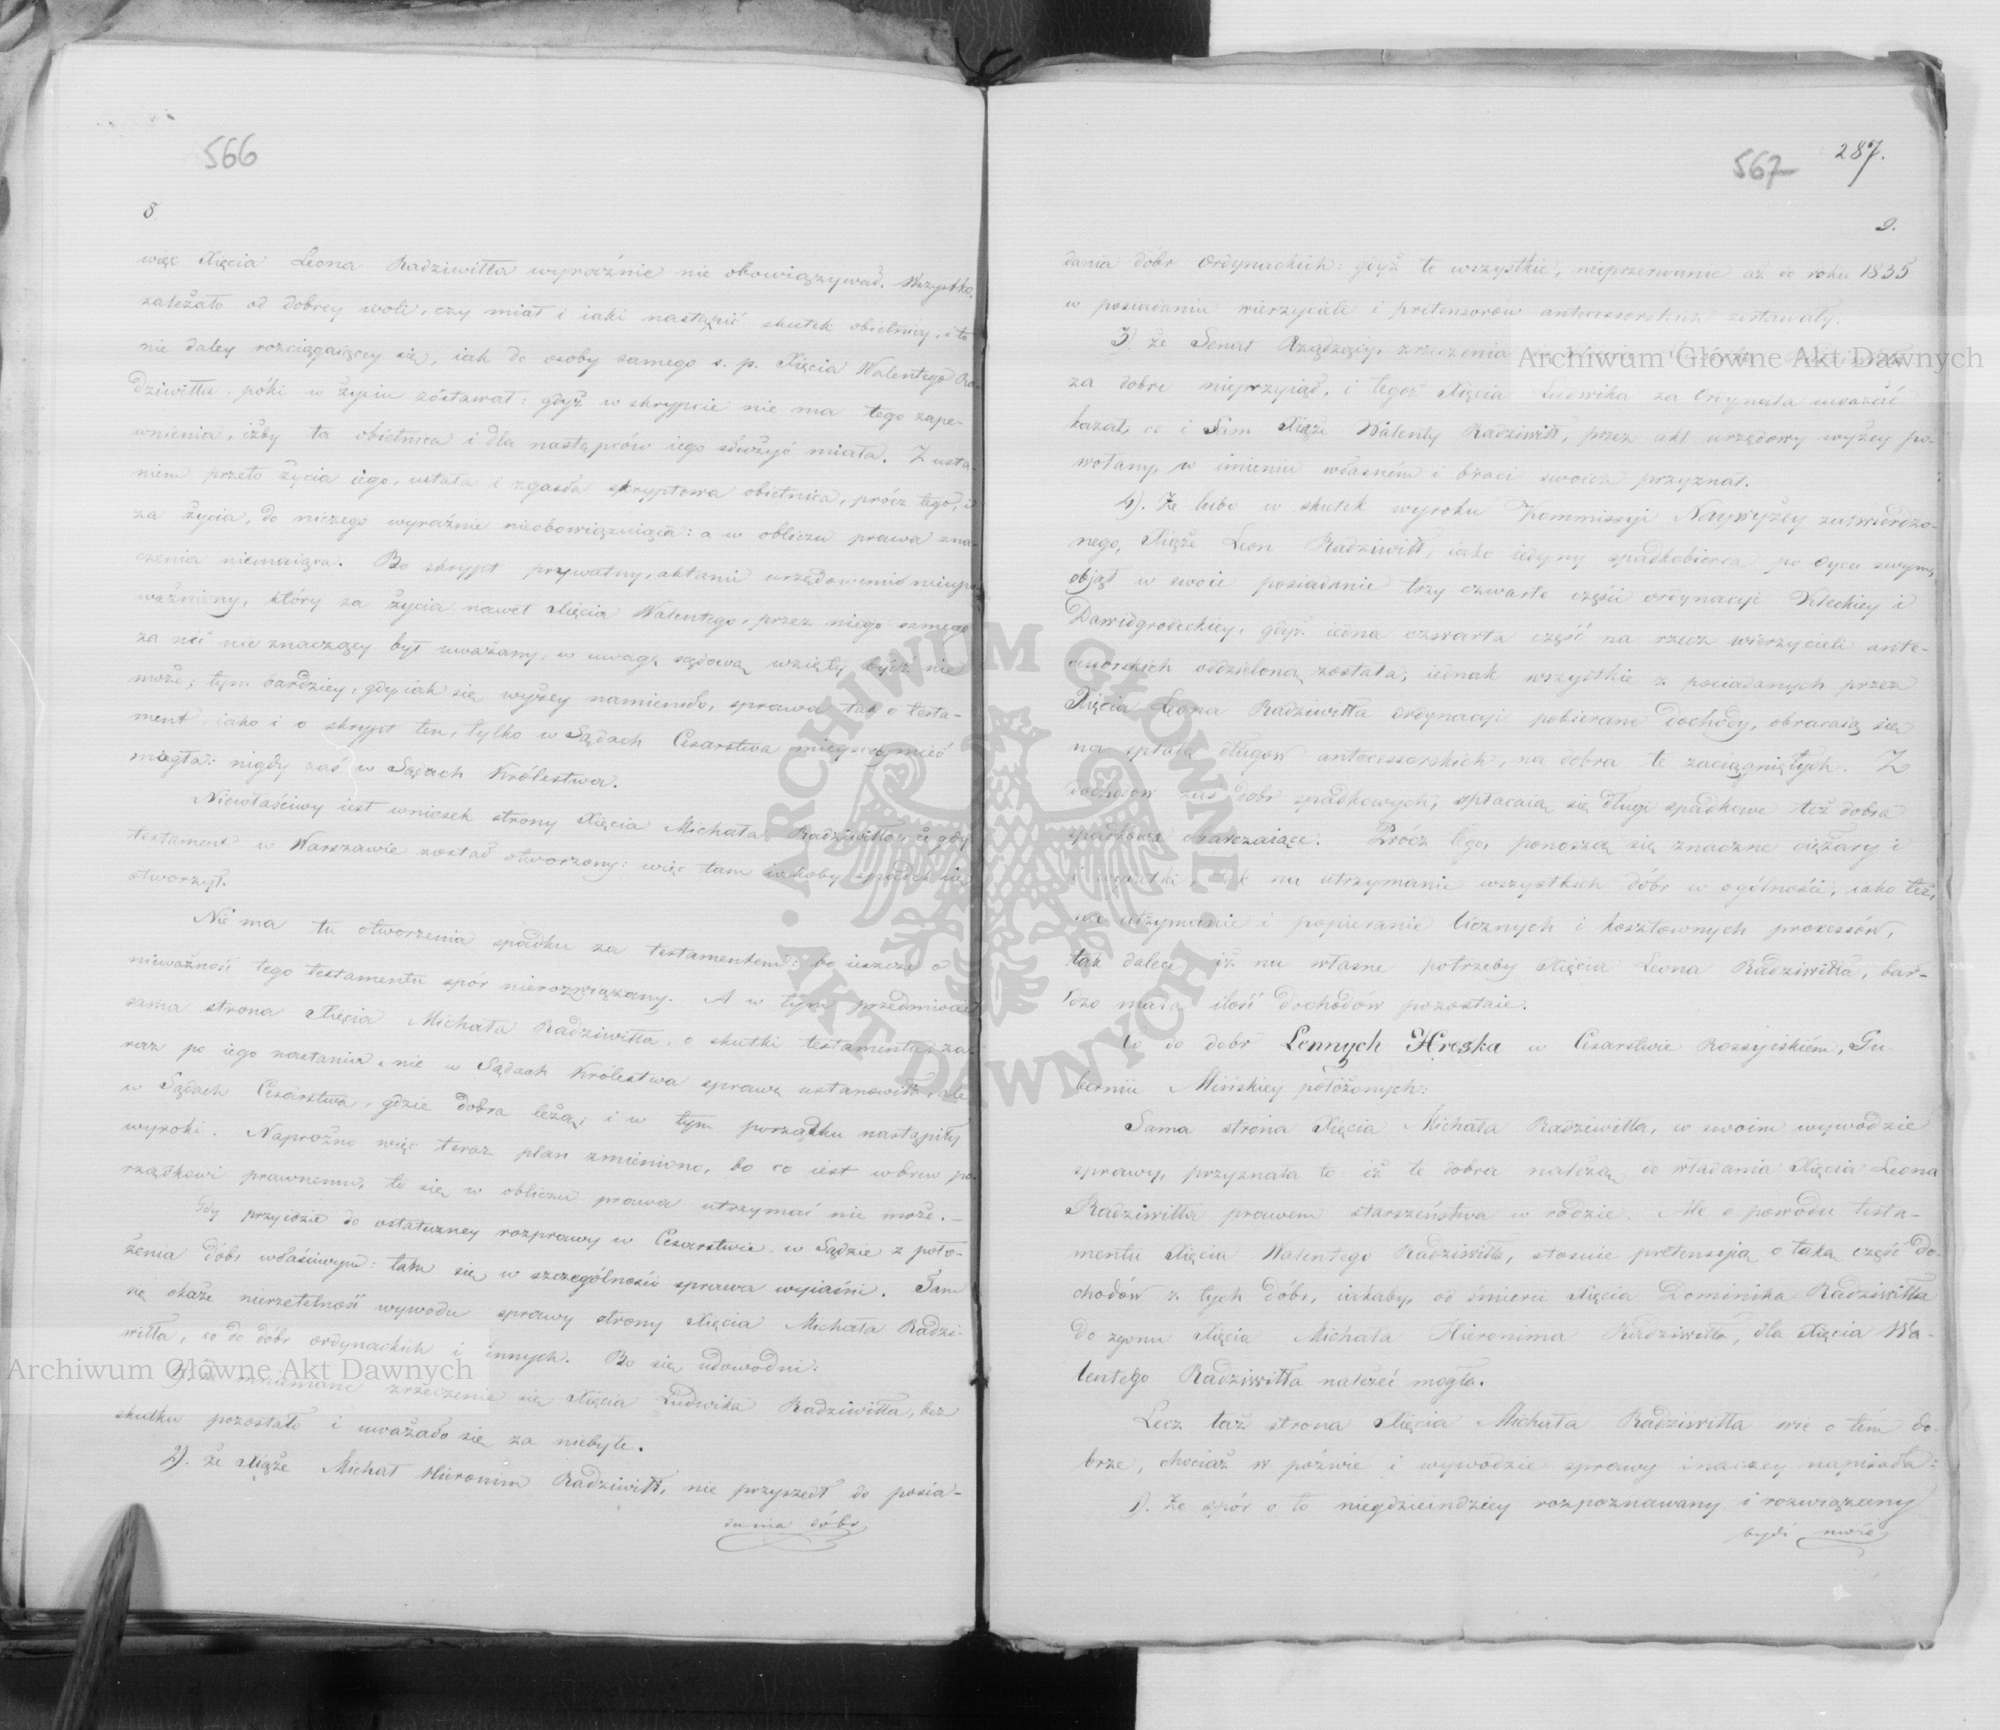 566
8.
więc Xięcia Leona Radziwiłła wyraźnie nie obowiązywał. Wszystko
zależało od dobrey woli, czy miał i iaki nastąpić skutek obietnicy, i to
nie daley rozciągaiącey się, iak do osoby samego s. p. Xięcia Walentego Ra-
dziwiłła, póki w życiu zostawał: gdyż w skrypcie nie ma tego zape-
wnienia, iżby ta obietnica i dla następców iego służyć miała. Z usta-
niem przeto życia iego, ustała i zgasła skryptowa obietnica, prócz tego,
za życia, do niczego wyraźnie nieobowiązuiąca: a w obliczu prawa zna-
czenia niemaiąca. Bo skrypt prywatny, aktami urzędowemi
ważniony, który za życia nawet Xięcia Walentego, przez niego samego
za nic nie znaczący był uważany, w uwagę sądową wzięty bydź nie
może; tym bardziey, gdy iak się wyżey namieniło, sprawa tak o testa-
ment, iako i o skrypt ten, tylko w Sądach Cesarstwa mieysce mieć
mogła: nigdy zaś w Sądach Królestwa.
Niewłaściwy iest wniosek strony Xięcia Michała Radziwiłła, że gdy
testament w Warszawie został otworzony: więc tam iakoby spadek się
otworzył.
Nie ma tu otworzenia spadku za testamentem: bo ieszcze o
nieważność tego testamentu spór nierozwiązany. A w tym przedmiocie
sama strona Xięcia Michała Radziwiłła, o skutki testamentu, za-
raz po iego nastaniu, nie w Sądach Królestwa sprawę ustanowiła, ale
w Sądach Cesarstwa, gdzie dobra leżą; i w tym porządku nastąpiły
wyroki. Naprożno więc teraz plan zmieniono, bo co iest wbrew po-
rządkowi prawnemu, to się w obliczu prawa utrzymać nie może.—
Gdy przyidzie do ostateczney rozprawy w Cesarstwie w Sądzie z poło-
żenia dóbr właściwym: tam się w szczególności sprawa wyiaśni. Tam
się okaże nierzetelność wywodu sprawy strony Xięcia Michała Radzi-
wiłła, co do dóbr ordynackich i innych. Bo się udowodni:
1). Że mniemane zrzeczenie się Xięcia Ludwika Radziwiłła, bez
skutku pozostało i uważało się za niebyłe.
2). że Xiąże Michał Hieronim Radziwiłł, nie przyszedł do posia-
dania dóbr
567
287.
9.
dania dóbr Ordynackich: gdyż te wszystkie, nieprzerwanie aż do roku 1835
w posiadaniu wierzycieli i pretensorów antecessorskich zostawały.
3). Że Senat Rządzący, zrzeczenia się Xięcia Radziwiłła
za dobre nieprzyiął, i tegoż Xięcia Ludwika za Ordynata uważać
kazał, co i Sam Xiąże Walenty Radziwiłł, przez akt urzędowy wyżey po-
wołany, w imieniu własném i braci swoich przyznał.
4). Że lubo w skutek wyroku Kommissyi Naywyżey zatwierdzo-
nego, Xiąże Leon Radziwiłł, iako iedyny spadkobierca po oycu swym,
objął w swoie posiadanie trzy czwarte części ordynacyi Kleckiey i
Dawidgrodeckiey, gdyż iedna czwarta część na rzecz wierzycieli ante-
cessorskich oddzieloną została, iednak wszystkie z posiadanych przez
Xięcia Leona Radziwiłła ordynacyi pobierane dochody, obracaią się
na spłatę długów antecessorskich, na dobra te zaciągniętych. Z
dochodów zaś dóbr spadkowych, spłacaią się długi spadkowe też dobra
spadkowe obarczaiące. Prócz tego, ponoszą się znaczne ciężary i
i wydatki, tak na utrzymanie wszystkich dóbr w ogólności, iako też,
na utrzymanie i popieranie licznych i kosztownych processów,
tak dalece iż na własne potrzeby Xięcia Leona Radziwiłła, bar-
dzo mała ilość dochodów pozostaie.
Co do dóbr Lennych Hreska w Cesarstwie Rossyiskiém, Gu-
bernii Mińskiey położonych:
Sama strona Xięcia Michała Radziwiłła, w swoim wywodzie
sprawy, przyznała to iż te dobra należą do władania Xięcia Leona
Radziwiłła prawem starszeństwa w rodzie. Ale z powodu testa-
mentu Xięcia Walentego Radziwiłła, stosuie pretensyią o taką część do-
chodów z tych dóbr, iakaby, od śmierci Xięcia Dominika Radziwiłła
do zgonu Xięcia Michała Hieronima Radziwiłła, dla Xięcia Wa-
lentego Radziwiłła należeć mogła.
Lecz taż strona Xięcia Michała Radziwiłła wie o tém do-
brze, chociaż w pozwie i wywodzie sprawy inaczey napisała:
1). Że spór o to niegdzieindziey rozpoznawany i rozwiązany
bydź może
Archiwum Główne Akt Dawnych
Archiwum Główne Akt Dawnych
ARCHIWUM GŁÓWNE AKT DAWNYCH